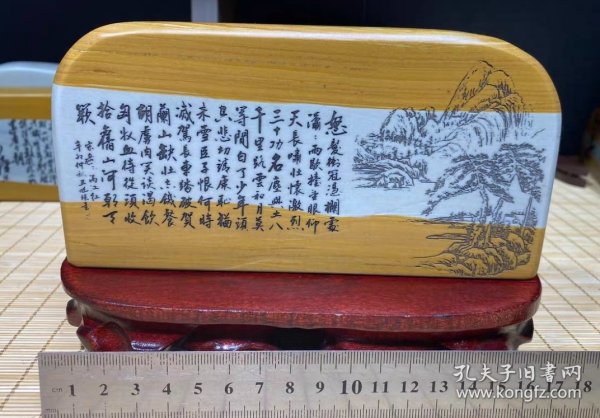 怒髮衝冠憑欄處
瀟瀟雨歇擡望眼仰
天長嘯壯懷激烈
三十功名塵與土八
千里路雲和月莫
等閒白了少年頭
空悲切靖康恥猶
未雪臣子恨何時
滅駕長車踏破賀
蘭山缺壯志飢餐
胡虜肉笑談渴飲
匈奴血待從頭收
拾舊山河朝天
闕
cm 1 2 3 4 5 6 7 8 9 10 11 12 13 14 15 16 17 18
孔夫子旧书网
www.kongfz.com